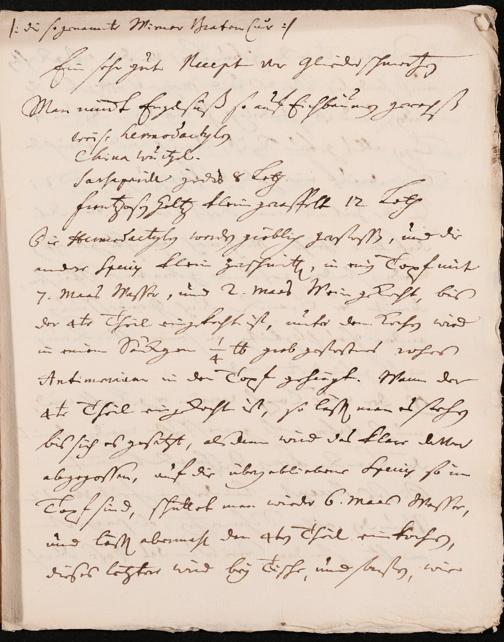 /: die sogenante Wiener Braten Cur :/
Ein sehr gut Recept vor Gliederschmertzen
Man nimmt Engelsüß so auf Eichbäumen gewachsen
weiß hermodactylen
China wurtzel.
Sarsaparille jedes 8 Loth
frantzosen holtz klein geraspelt 12 Loth
Die Hermodactylen werden gröblich gestossen, und die
andere Species klein geschnitten, in ein Topf mit
7. Maas Wasser, und 2. Maas Wein gekocht, bis
der 4te Theil eingekocht ist, unter dem kochen wird
in einem Säckgen 1/4 lb grob gestossenes rohes
Antimonium in den Topf gehengt. Wann der
4te Theil eingekocht ist, so lasst man es stehen
bis sich es gesetzt, alsdann wird das klare davon
abgegossen, auf die übergebliebene Species so im
Topf sind, schüttet man wieder 6. Maas Wasser,
und lasst abermahl den 4ten Theil einkochen,
dieses letztere wird bey Tische, und sonsten, wie